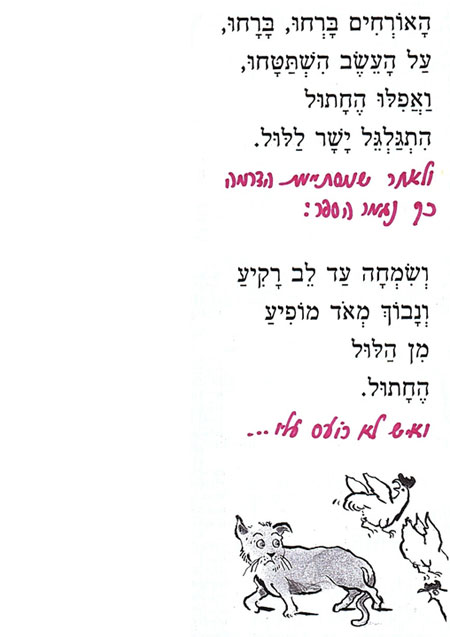 הָאוֹרְחִים בָּרְחוּ, בָּרָחוּ,
עַל הָעֵשֶׂב הִשְׁתַּטָּחוּ,
וַאֲפִלּוּ הֶחָתוּל
הִתְגַּלְגֵּל יָשָׁר לַלּוּל.
ולאחר שמסתיימת הדרמה
כך נגמר הספר:
וְשִׂמְחָה עַד לֵב רָקִיעַ
וְנָבוֹךְ מְאֹד מוֹפִיעַ
מִן הַלּוּל
הֶחָתוּל.
ואיש לא כועס עליו...